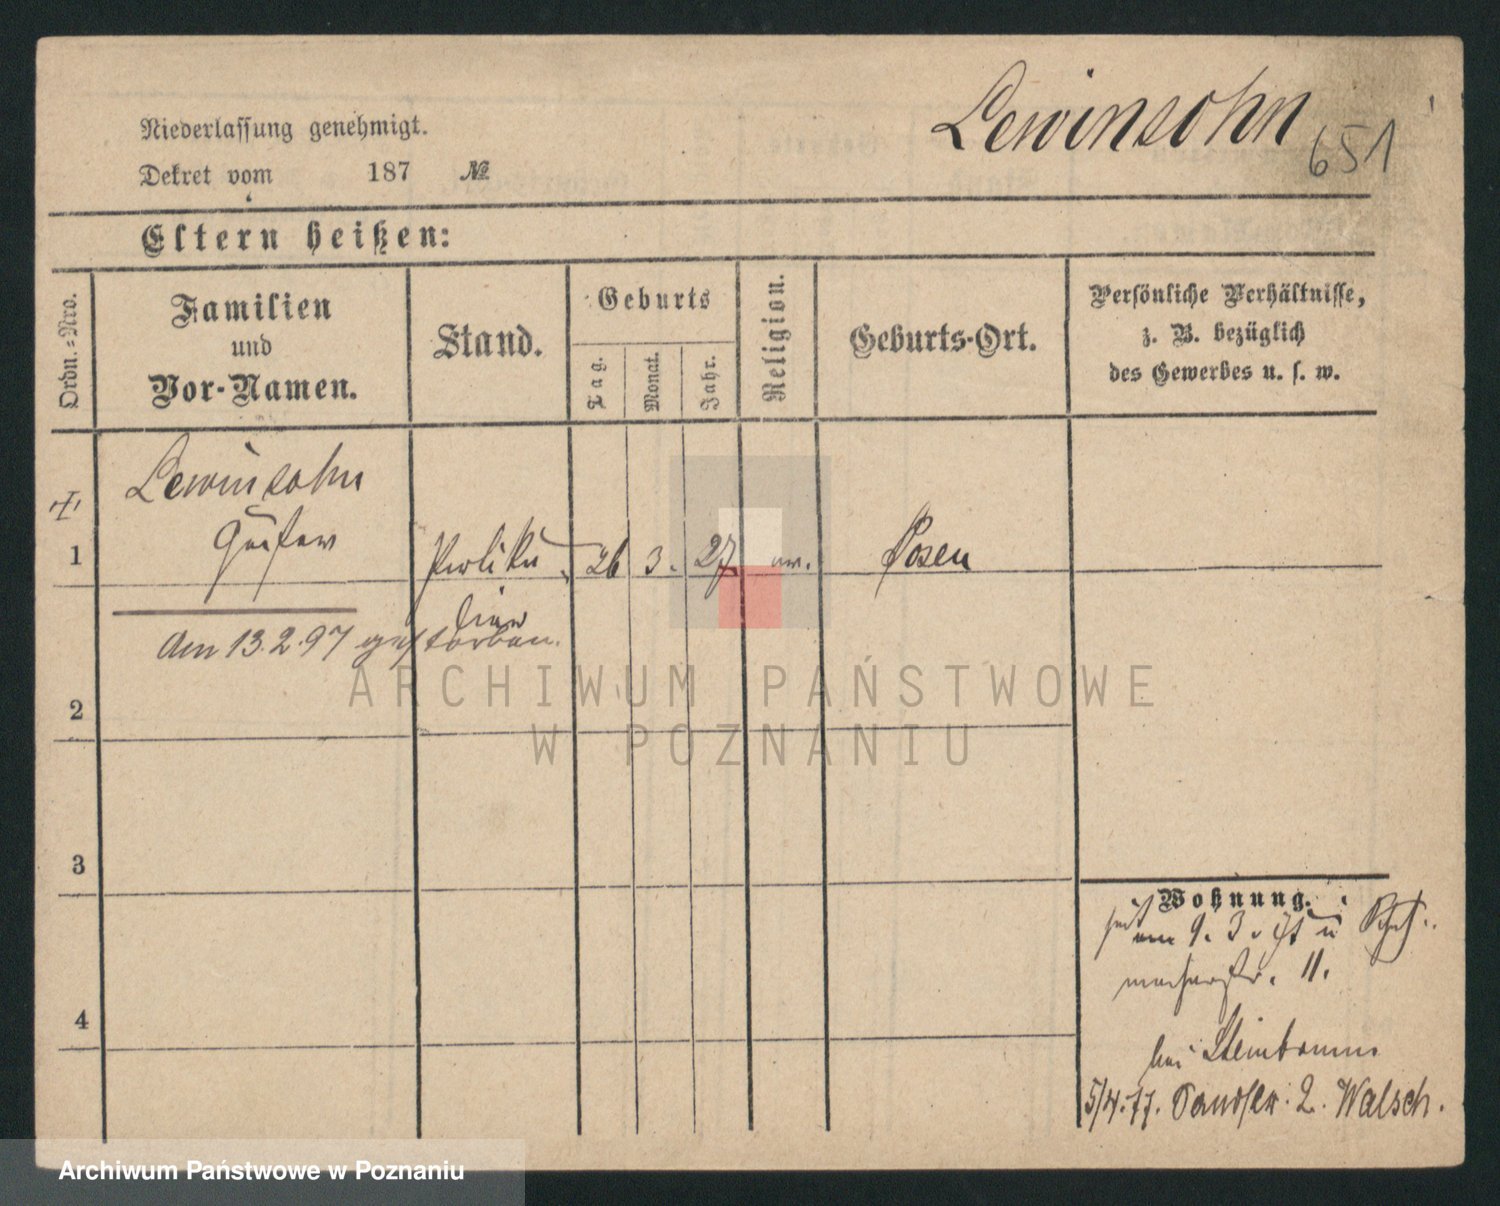 Lewinsohn
651
Niederlassung genehmigt.
Dekret vom 187 №
Eltern heißen:
Ordn.=Nro.
Familien
und
Vor-Namen.
Stand.
Geburts
Tag.
Monat.
Jahr.
Religion.
Geburts-Ort.
Persönliche Verhältnisse,
z. B. bezüglich
des Gewerbes u. s. w.
Lewinsohn
1 26 3. 27 Posen
hier
Am 13.2.97 gestorben.
2
3
4
Wohnung.
seit
11.
bei
5/4.77. 2. Walsch.
ARCHIWUM PAŃSTWOWE
W POZNANIU
Archiwum Państwowe w Poznaniu